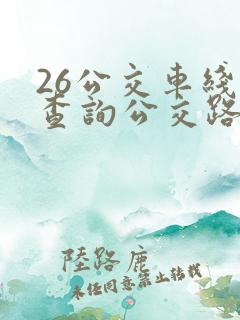 26公交車綫
查詢公交路
陸路鹿
未经同意禁止转载